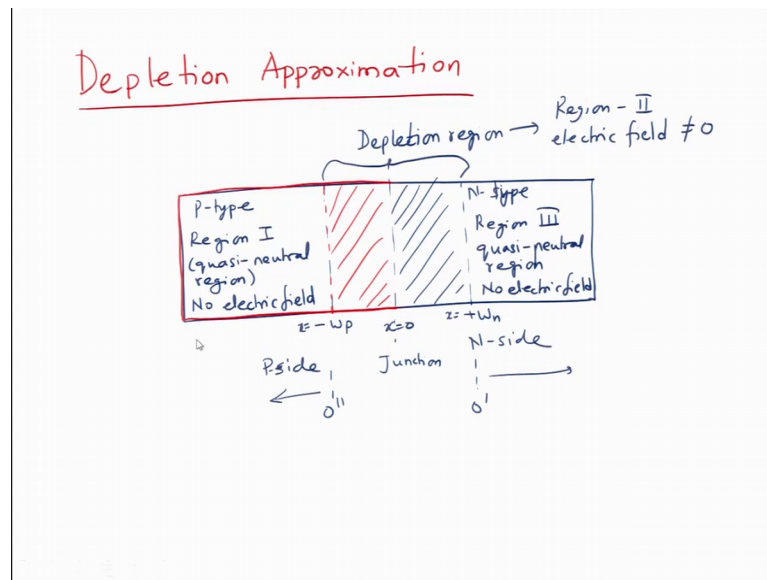 Depletion Approximation
Depletion region → Region - II
electric field ≠ 0
P-type
Region I
(quasi-neutral
region)
No electric field
N-type
Region III
quasi-neutral
region
No electric field
x=-Wp
x=0
x=+Wn
P-side
Junction
N-side
O''
O'